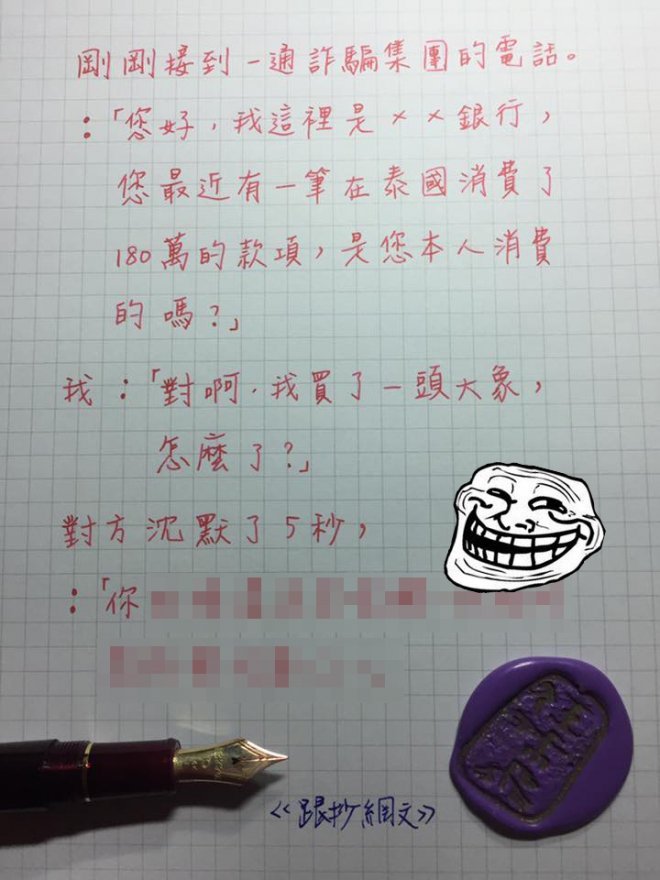 剛剛接到一通詐騙集團的電話。
：「您好，我這裡是××銀行，
您最近有一筆在泰國消費了
180萬的款項，是您本人消費
的嗎？」
我：「對啊．我買了一頭大象，
怎麼了？」
對方沉默了5秒，
：「你
《跟抄網文》